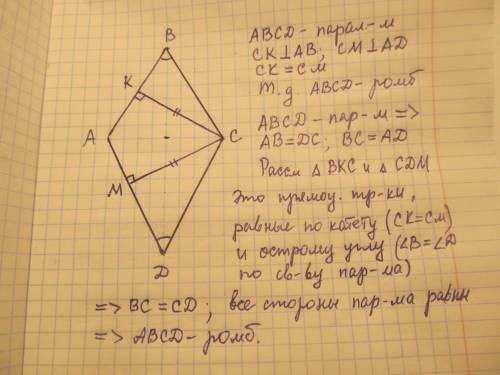 B
K
A
C
M
D
ABCD - парал-м
CK⊥AB; CM⊥AD
CK = CM
Т.д. ABCD - ромб
ABCD - пар-м =>
AB = DC; BC = AD
Рассм △ BKC и △ CDM
Это прямоу. тр-ки,
равные по катету (CK=CM)
и острому углу (∠B=∠D
по св-ву пар-ма)
=> BC = CD; все стороны пар-ма равны
=> ABCD - ромб.